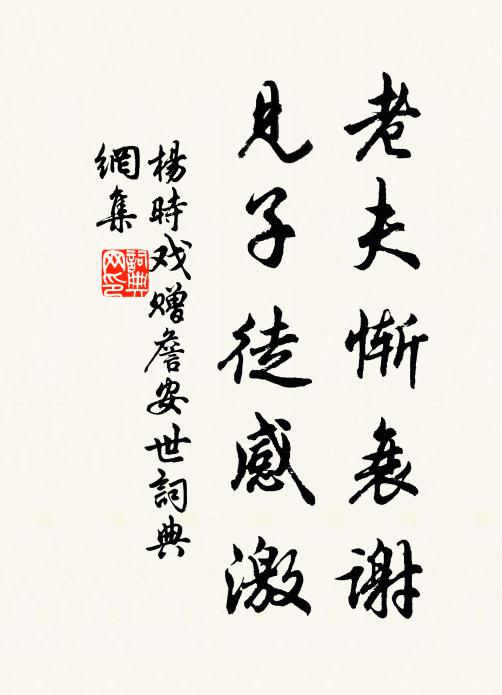 老夫惭衰谢
見子徒感激
楊時戏赠詹安世詞典
網集
詞典
网印